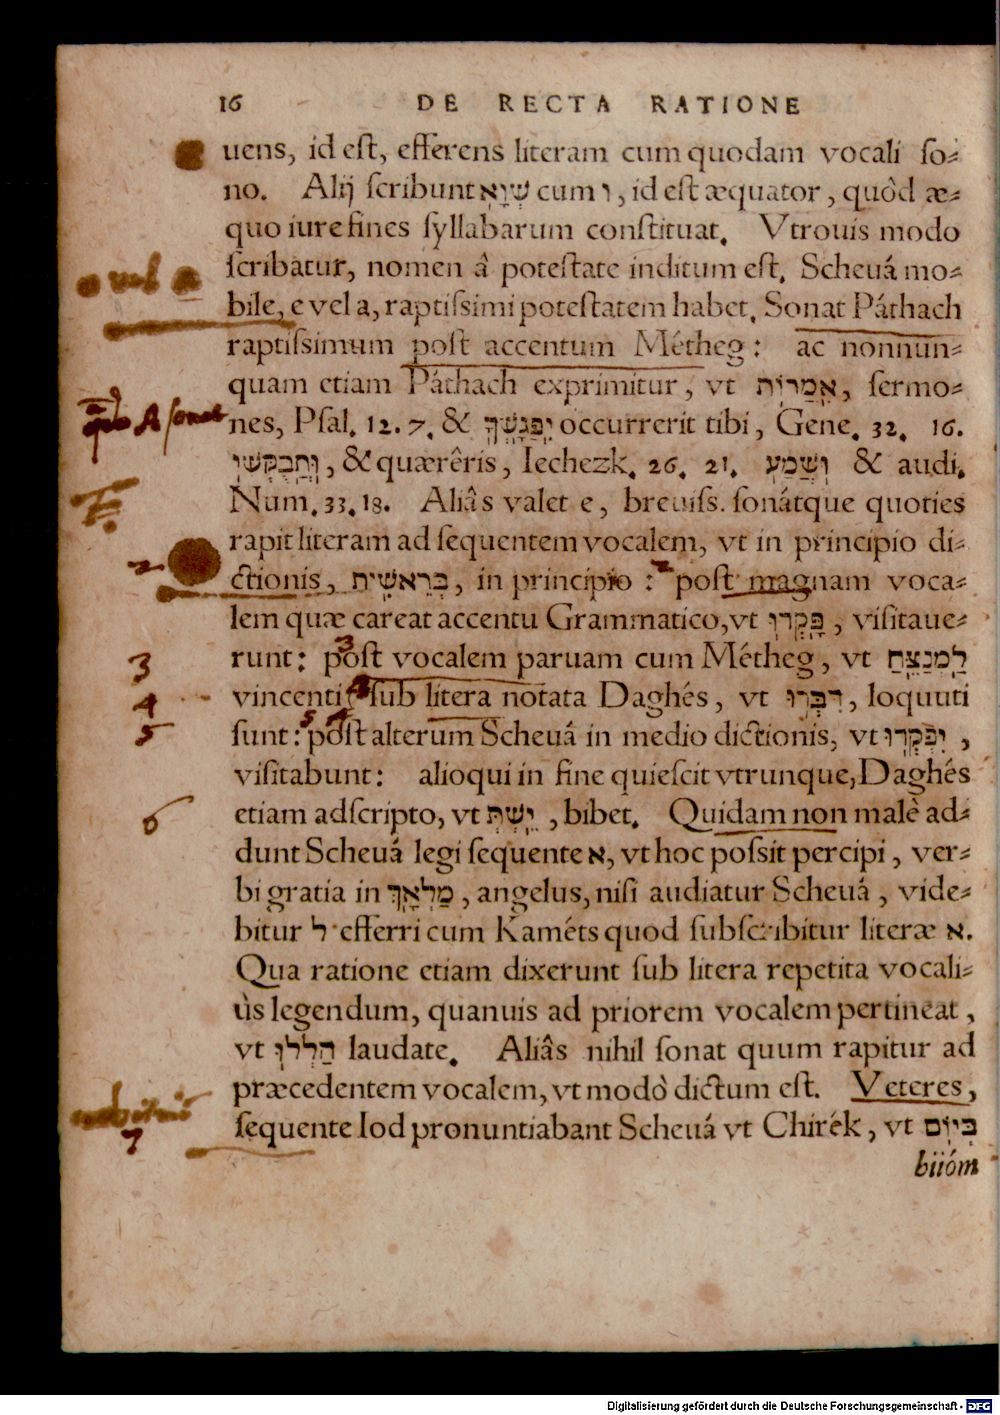 16 DE RECTA RATIONE
uens, id eſt, efferens literam cum quodam vocali ſo-
no. Alij ſcribunt שְׁוָא cum ו, id eſt æquator, quòd æ-
quo iure fines ſyllabarum conſtituat. Vtrouis modo
ſcribatur, nomen â poteſtate inditum eſt. Scheuá mo-
bile, e vel a, raptiſsimi poteſtatem habet. Sonat Páthach
raptiſsimum poſt accentum Métheg: ac nonnun-
quam etiam Páthach exprimitur, vt אֲמָרוֹת, ſermo-
nes, Pſal. 12. 7. & יִפְגָּשְׁךָ occurrerit tibi, Gene. 32. 16.
וּתְבֻקְשִׁי, & quærêris, Iechezk. 26. 21. וּשְׁמַע & audi.
Num. 33. 18. Aliâs valet e, breuiſs. ſonátque quoties
rapit literam ad ſequentem vocalem, vt in principio di-
ctionis, בְּרֵאשִׁית, in principio: poſt magnam voca-
lem quæ careat accentu Grammatico, vt פָּקְדוּ, viſitaue-
runt: poſt vocalem paruam cum Métheg, vt לַמְנַצֵּחַ
vincenti: ſub litera notata Daghés, vt דִּבְּרוּ, loquuti
ſunt: poſt alterum Scheuá in medio dictionis, vt יִפְקְדוּ,
viſitabunt: alioqui in fine quieſcit vtrunque, Daghés
etiam adſcripto, vt יֵשְׁתְּ, bibet. Quidam non malè ad-
dunt Scheuá legi ſequente א, vt hoc poſsit percipi, ver-
bi gratia in מַלְאָךְ, angelus, niſi audiatur Scheuá, vide-
bitur ל efferri cum Kaméts quod ſubſcribitur literæ א.
Qua ratione etiam dixerunt ſub litera repetita vocali-
ùs legendum, quanuis ad priorem vocalem pertineat,
vt הַלְלוּ laudate. Aliâs nihil ſonat quum rapitur ad
præcedentem vocalem, vt modò dictum eſt. Veteres,
ſequente Iod pronuntiabant Scheuá vt Chirék, vt בְּיוֹם
biióm
e vel a
A ſonat
2
3
4
5
6
7
2
3
4
5
Digitalisierung gefördert durch die Deutsche Forschungsgemeinschaft - DFG